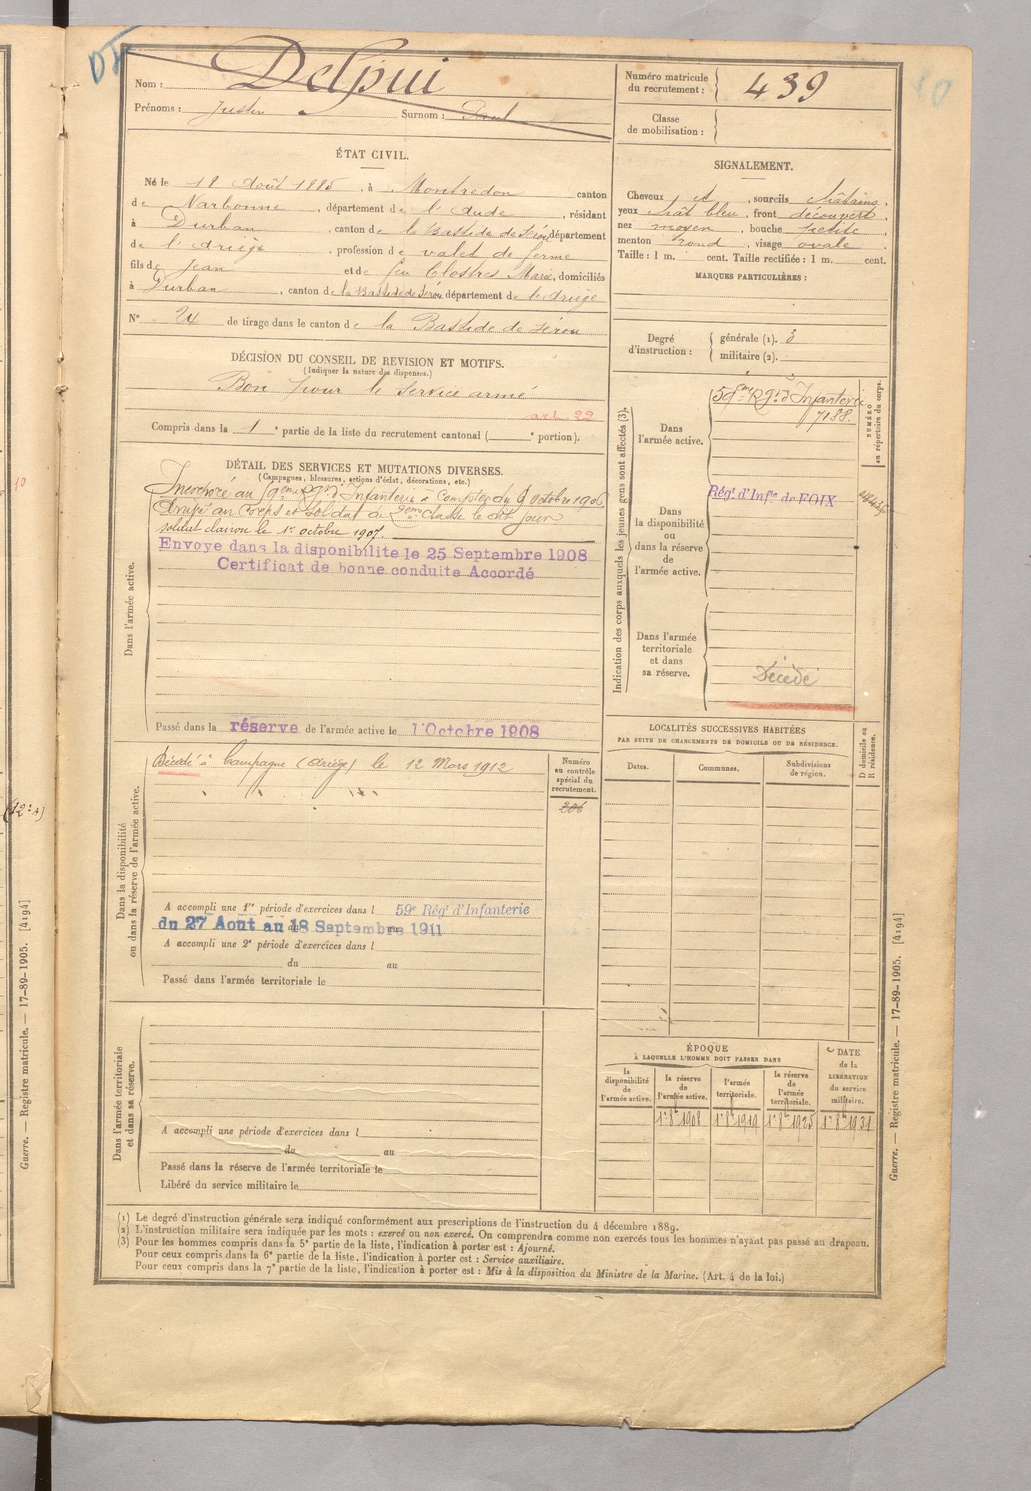 Nom : Delpui
Prénoms : Justin Surnom :
Numéro matricule du recrutement : 439
Classe de mobilisation :
ÉTAT CIVIL.
Né le 18 Août 1885, à Montredon canton
de Narbonne, département de l'Aude, résidant
à Durban, canton de la Bastide de Sérou département
de l'Ariège, profession de valet de ferme
fils de Jean et de feu Clostres Marie, domiciliés
à Durban, canton de la Bastide de Sérou département de l'Ariège
N° 24 de tirage dans le canton de la Bastide de Sérou
SIGNALEMENT.
Cheveux et, sourcils châtains,
yeux chât bleu, front découvert,
nez moyen, bouche petite,
menton rond, visage ovale
Taille : 1 m. cent. Taille rectifiée : 1 m. cent.
MARQUES PARTICULIÈRES :
Degré d'instruction : générale (1). 3
militaire (2).
DÉCISION DU CONSEIL DE REVISION ET MOTIFS.
(Indiquer la nature des dispenses.)
Bon pour le service armé
art. 22
Compris dans la 1e partie de la liste du recrutement cantonal ( e portion).
DÉTAIL DES SERVICES ET MUTATIONS DIVERSES.
(Campagnes, blessures, actions d'éclat, décorations, etc.)
Dans l'armée active.
Incorporé au 59ème Rgt d'Infanterie à compter du 6 octobre 1906
Arrivé au Corps et soldat de 2ème classe le dit jour
soldat clairon le 1er octobre 1907.
Envoye dans la disponibilite le 25 Septembre 1908
Certificat de bonne conduite Accordé
Passé dans la réserve de l'armée active le 1 Octobre 1908
Indication des corps auxquels les jeunes gens sont affectés (3).
NUMÉRO au répertoire du corps.
Dans l'armée active.
59ème Rgt d'Infanterie
7188.
Dans la disponibilité ou dans la réserve de l'armée active.
Régt d'Infie de FOIX
Dans l'armée territoriale et dans sa réserve.
Décédé
Dans la disponibilité ou dans la réserve de l'armée active.
Décédé à Campagne (Ariège) le 12 Mars 1912
Numéro au contrôle spécial du recrutement.
206
A accompli une 1re période d'exercices dans l 59e Régt d'Infanterie
du 27 Août au 18 Septembre 1911
A accompli une 2e période d'exercices dans l
du au
Passé dans l'armée territoriale le
LOCALITÉS SUCCESSIVES HABITÉES
PAR SUITE DE CHANGEMENTS DE DOMICILE OU DE RÉSIDENCE.
Dates. Communes. Subdivisions de région. D domicile ou R résidence.
Dans l'armée territoriale et dans sa réserve.
A accompli une période d'exercices dans l
du au
Passé dans la réserve de l'armée territoriale le
Libéré du service militaire le
ÉPOQUE
À LAQUELLE L'HOMME DOIT PASSER DANS
la disponibilité de l'armée active. la réserve de l'armée active. l'armée territoriale. la réserve de l'armée territoriale. DATE de la LIBÉRATION du service militaire.
1er 8bre 1908 1er 8bre 1919 1er 8bre 1925 1er 8bre 1931
(1) Le degré d'instruction générale sera indiqué conformément aux prescriptions de l'instruction du 4 décembre 1889.
(2) L'instruction militaire sera indiquée par les mots : exercé ou non exercé. On comprendra comme non exercés tous les hommes n'ayant pas passé au drapeau.
(3) Pour les hommes compris dans la 5e partie de la liste, l'indication à porter est : Ajourné.
Pour ceux compris dans la 6e partie de la liste, l'indication à porter est : Service auxiliaire.
Pour ceux compris dans la 7e partie de la liste, l'indication à porter est : Mis à la disposition du Ministre de la Marine. (Art. 4 de la loi.)
Guerre. — Registre matricule. — 17-89-1905. [4194]
Guerre. — Registre matricule. — 17-89-1905. [4194]